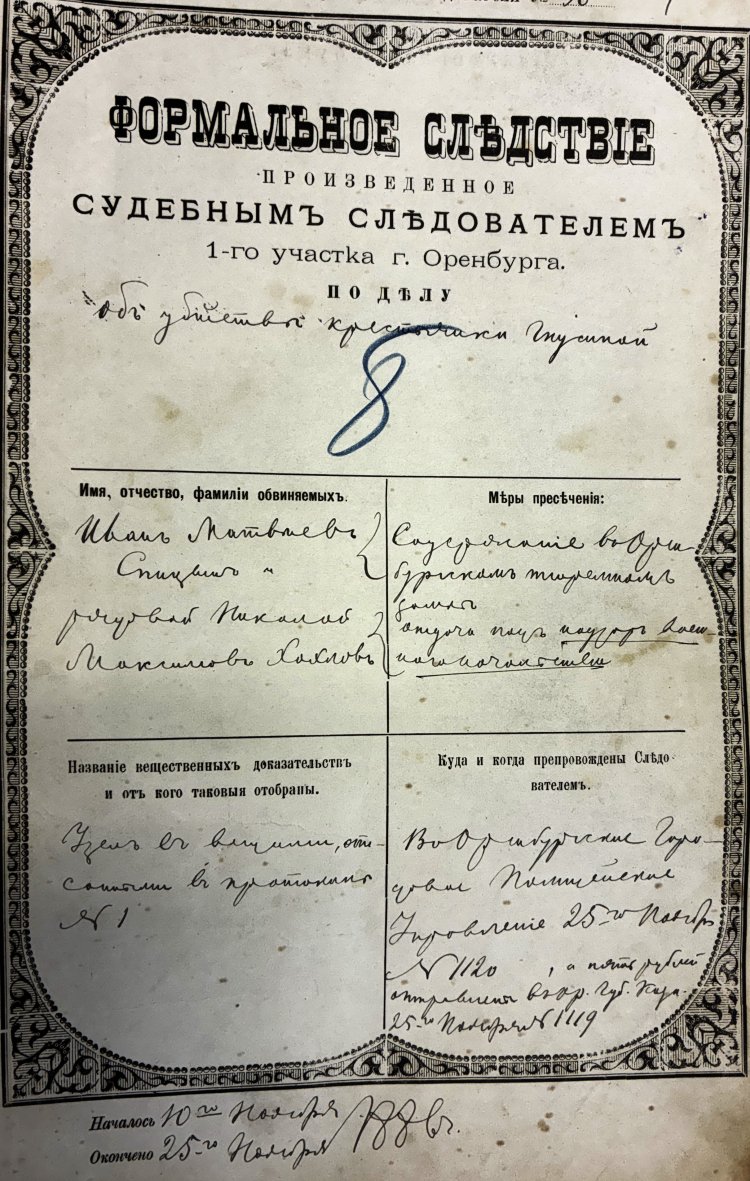 ФОРМАЛЬНОЕ СЛѢДСТВІЕ
ПРОИЗВЕДЕННОЕ
СУДЕБНЫМЪ СЛѢДОВАТЕЛЕМЪ
1-го участка г. Оренбурга.
ПО ДѢЛУ
объ убійствѣ крестьянки Гнусиной
8
Имя, отчество, фамиліи обвиняемыхъ.
Иванъ Матвѣевъ
Спицынъ
рядовой Николай
Максимовъ Хохловъ
Мѣры пресѣченія:
Содержаніе въ Орен-
бургскомъ тюремномъ
замкѣ
отдача подъ надзоръ воен-
наго начальства
Названіе вещественныхъ доказательствъ
и отъ кого таковыя отобраны.
Узелъ съ вещами, опи-
санными въ протоколѣ
№ 1
Куда и когда препровождены Слѣдо
вателемъ.
Въ Оренбургское Горо-
довое Полицейское
Управленіе 25-го Ноября
№ 1120, а пять рублей
отправлены въ Ор. Губ. Казн.
25-го Ноября № 1119
Началось 10го Ноября
Окончено 25-го Ноября